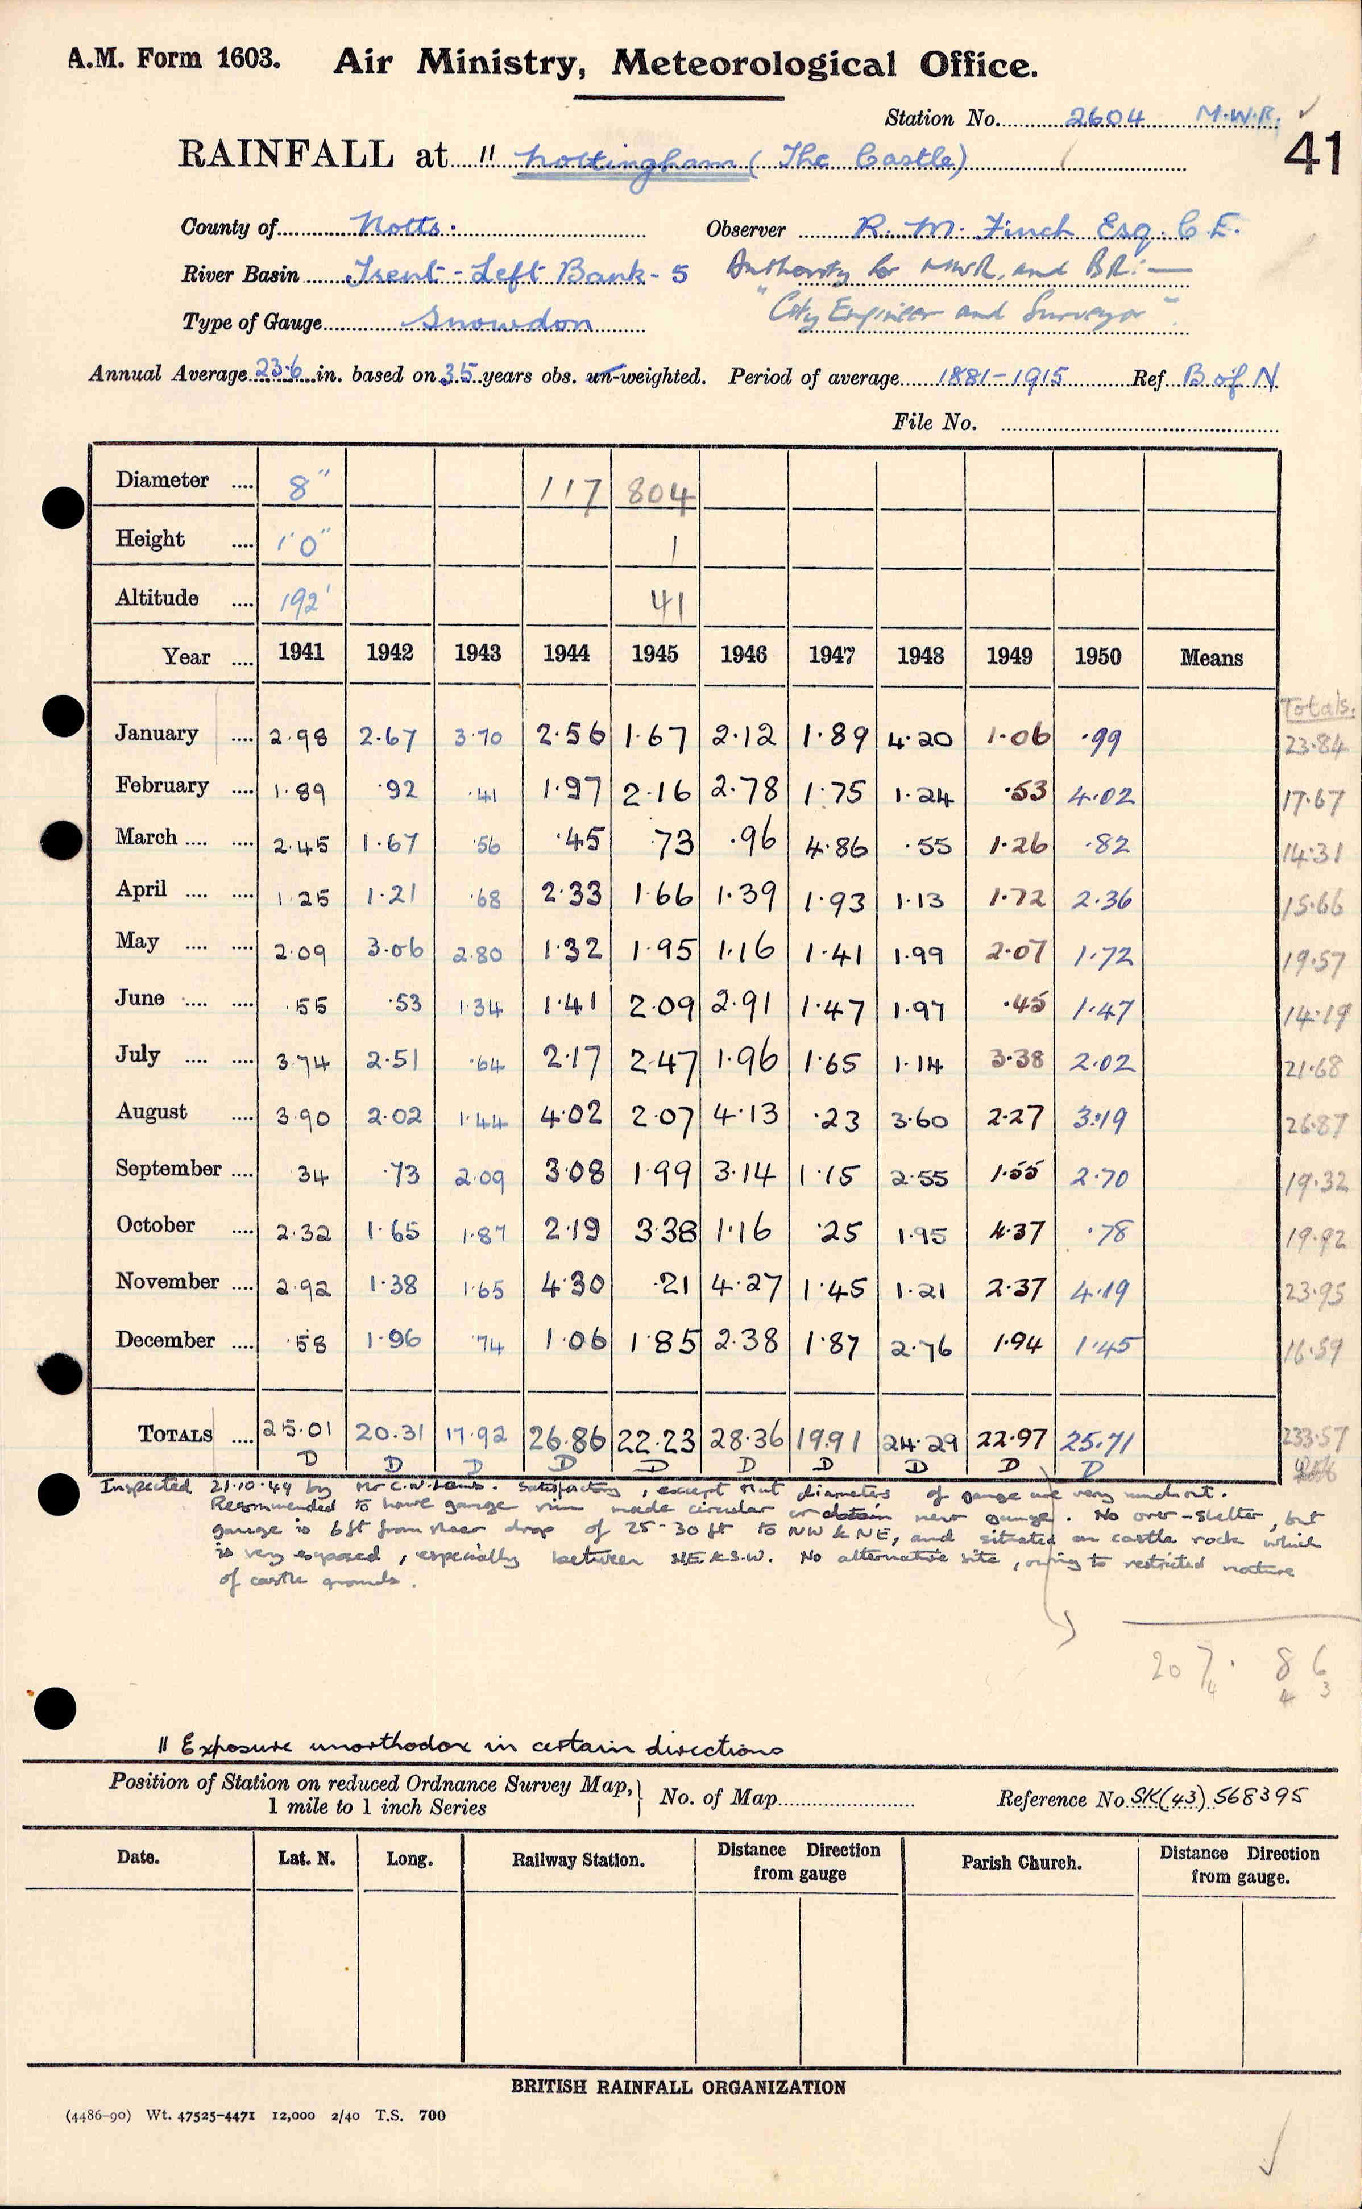 A.M. Form 1603. Air Ministry, Meteorological Office.
Station No. 2604 M.W.R. ✓
41
RAINFALL at " Nottingham (The Castle)
County of Notts. Observer R. M. Finch Esq. C.E.
River Basin Trent - Left Bank - 5 Authority for MWR, and BR: —
Type of Gauge Snowdon "City Engineer and Surveyor".
Annual Average 23.6 in. based on 35 years obs. un-weighted. Period of average 1881-1915 Ref B of N
File No.
Diameter 8" 117 804
Height 1'0" 1
Altitude 192' 41
Year 1941 1942 1943 1944 1945 1946 1947 1948 1949 1950 Means
Totals.
January 2.98 2.67 3.70 2.56 1.67 2.12 1.89 4.20 1.06 .99 23.84
February 1.89 .92 .41 1.97 2.16 2.78 1.75 1.24 .53 4.02 17.67
March 2.45 1.67 .56 .45 .73 .96 4.86 .55 1.26 .82 14.31
April 1.25 1.21 .68 2.33 1.66 1.39 1.93 1.13 1.72 2.36 15.66
May 2.09 3.06 2.80 1.32 1.95 1.16 1.41 1.99 2.07 1.72 19.57
June .55 .53 1.34 1.41 2.09 2.91 1.47 1.97 .45 1.47 14.19
July 3.74 2.51 .64 2.17 2.47 1.96 1.65 1.14 3.38 2.02 21.68
August 3.90 2.02 1.44 4.02 2.07 4.13 .23 3.60 2.27 3.19 26.87
September .34 .73 2.09 3.08 1.99 3.14 1.15 2.55 1.55 2.70 19.32
October 2.32 1.65 1.87 2.19 3.38 1.16 .25 1.95 4.37 .78 19.92
November 2.92 1.38 1.65 4.30 .21 4.27 1.45 1.21 2.37 4.19 23.95
December .58 1.96 .74 1.06 1.85 2.38 1.87 2.76 1.94 1.45 16.59
TOTALS 25.01 20.31 17.92 26.86 22.23 28.36 19.91 24.29 22.97 25.71 233.57
D D D D D D D D D D
Inspected 21.10.49 by Mr C.W. Lamb. Satisfactory, except that diameters of gauge are very much out.
Recommended to have gauge rim made circular or obtain new gauge. No over-shelter, but
gauge is 6ft from sheer drop of 25-30 ft to NW & NE, and situated on castle rock which
is very exposed, especially between NE & S.W. No alternative site, owing to restricted nature
of castle grounds.
207.86
4 4 3
" Exposure unorthodox in certain directions
Position of Station on reduced Ordnance Survey Map, 1 mile to 1 inch Series } No. of Map Reference No SK(43) 568395
Date. Lat. N. Long. Railway Station. Distance Direction from gauge Parish Church. Distance Direction from gauge.
BRITISH RAINFALL ORGANIZATION
(4486-90) Wt. 47525-4471 12,000 2/40 T.S. 700
✓